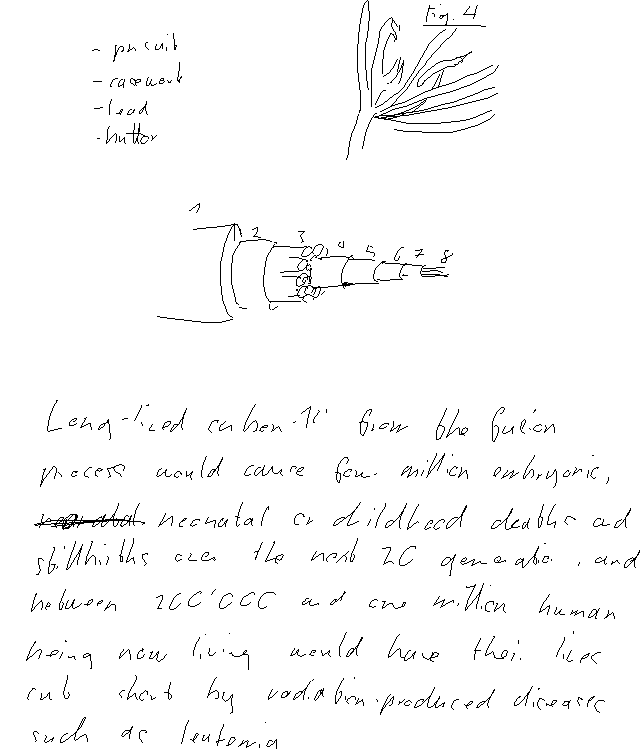 Fig. 4
- pursuit
- casework
- lead
- button
1
2
3
4
5
6
7
8
Long-lived carbon-14 from the fusion
process would cause four million embryonic,
neonatal or childhood deaths and
stillbirths over the next 20 generation, and
between 200'000 and one million human
being now living would have their lives
cut short by radiation-produced diseases
such as leukemia